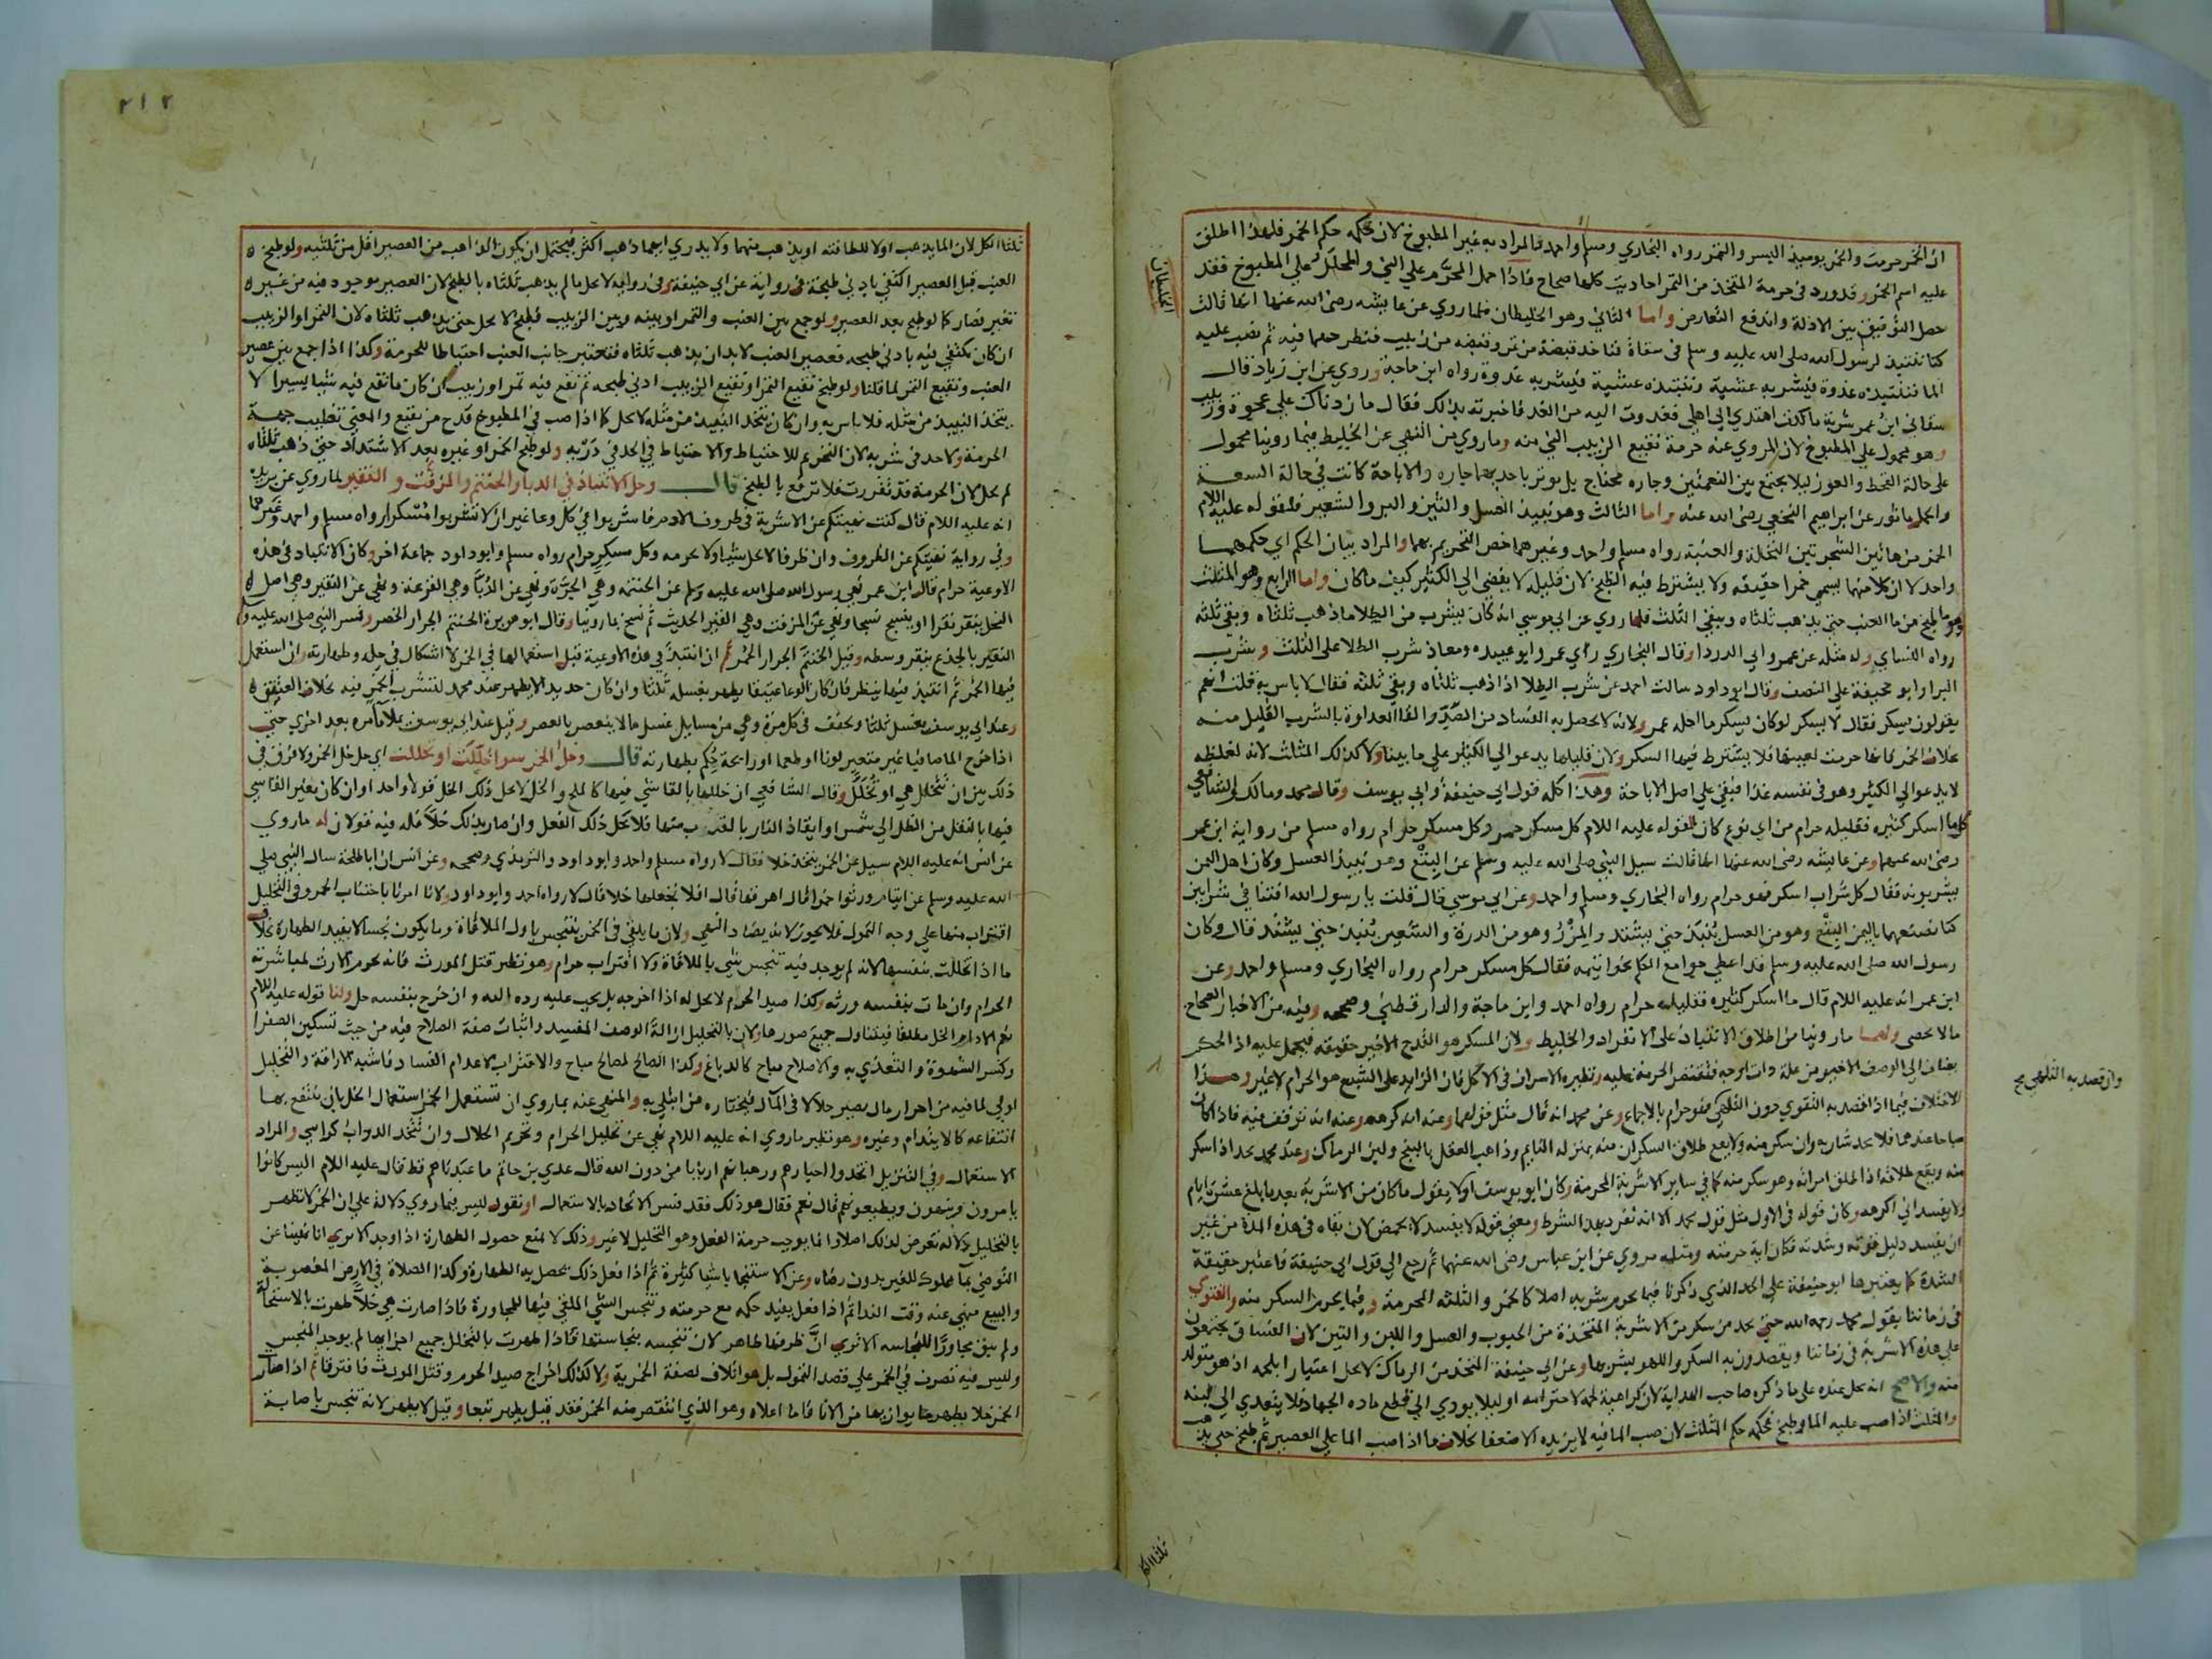 ان الخمر حرمت والخمر يوميذ البسر والتمر رواه البخاري ومسلم واحمد فالمراد به غير المطبوخ لان حكمه حكم الخمر فلهذا اطلق
عليه اسم الخمر وقد ورد في حرمة المتخذ من التمر احاديث كلها صحاح فاذا حمل المحرم علي الني والمحلل علي المطبوخ فقد
حصل التوفيق بين الادلة واندفع التعارض واما الثاني وهو الخليطان فلما روي عن عايشه رضي الله عنها انها قالت
الخليطان
كنا ننتبذ لرسول الله صلى الله عليه وسلم في سقاء فناخذ قبضة من تمر وقبضه من زبيب فنطرحهما فيه ثم نصب عليه
الما فننتبذه غدوة فيشربه عشية وننتبذه عشية فيشربه غدوة رواه ابن ماجة وروي عن ابن زياد قال
سقاني ابن عمر شربة ما كدت اهتدي الي اهلي فغدوت اليه من الغد فاخبرته بذلك فقال ما زدناك علي عجوة وزبيب
وهو محمول علي المطبوخ لان المروي عنه حرمة نقيع الزبيب الني منه وما روي من النهي عن الخليط فيما روينا محمول
على حالة القحط والعوز ليلا يجتمع بين النعمتين وجاره محتاج بل يوثر باحديهما جاره والاباحة كانت في حالة السعة
والحل ماثور عن ابراهيم النخعي رضي الله عنه واما الثالث وهو نبيذ العسل والتين والبر والشعير فلقوله عليه اللام
الخمر من هاتين الشجرتين النخلة والعنبة رواه مسلم واحمد وغيرهما خص التحريم بهما والمراد بيان الحكم اي حكمهما
واحد لا ان كلا منهما يسمي خمرا حقيقه ولا يشترط فيه الطبخ لان قليله لا يفضي الي الكثير كيف ما كان واما الرابع وهو المثلث
وهو ما طبخ من ما العنب حتي يذهب ثلثاه ويبقي الثلث فلما روي عن ابي موسي انه كان يشرب من الطلا ما ذهب ثلثاه وبقي ثلثه
رواه النساي وله مثله عن عمر وابي الدردا وقال البخاري راي عمر وابو عبيده ومعاذ شرب الطلا على الثلث وشرب
البرا وابو جحيفة علي النصف وقال ابو داود سالت احمد عن شرب الطلا اذا ذهب ثلثاه وبقي ثلثه فقال لا باس به قلت انهم
يقولون يسكر فقال لا يسكر لو كان يسكر ما احله عمر ولانه لا يحصل به الفساد من الصد والقا العداوة بالشرب القليل منه
بخلاف الخمر فانها حرمت لعينها فلا يشترط فيها السكر ولان قليلها يدعو الي الكثير علي ما بينا ولا كذلك المثلث لانه لغلظه
لا يدعو الي الكثير وهو في نفسه غذا فبقي علي اصل الاباحة وهذا كله قول ابي حنيفة وابي يوسف وقال محمد ومالك والشافعي
كل ما اسكر كثيره فقليله حرام من اي نوع كان لقوله عليه اللام كل مسكر خمر وكل مسكر حرام رواه مسلم من رواية ابن عمر
رضي الله عنهما وعن عايشه رضي الله عنها انها قالت سيل النبي صلى الله عليه وسلم عن البتع وهو نبيذ العسل وكان اهل اليمن
يشربونه فقال كل شراب اسكر فهو حرام رواه البخاري ومسلم واحمد وعن ابي موسي قال قلت يا رسول الله افتنا في شرابين
كنا نصنعهما باليمن البتع وهو من العسل ينبذ حتي يشتد والمزر وهو من الذرة والشعير ينبذ حتي يشتد قال وكان
رسول الله صلى الله عليه وسلم قد اعطي جوامع الكلم بخواتيمه فقال كل مسكر حرام رواه البخاري ومسلم واحمد وعن
ابن عمر انه عليه اللام قال ما اسكر كثيره فقليله حرام رواه احمد وابن ماجة والدارقطني وصححه وفيه من الاخبار الصحاح
ما لا يحصى ولهما ما روينا من اطلاق الانتباذ على الانفراد والخليط ولان المسكر هو القدح الاخير حقيقه فيحمل عليه اذ الحكم
يضاف الي الوصف الاخير من علة ذات اوجه فتقتصر الحرمة عليه ونظيره الاسراف في الاكل فان الزايد على الشبع هو الحرام لا غير وهذا
الاختلاف فيما اذا قصد به التقوي دون التلهي فهو حرام بالاجماع وعن محمد انه قال مثل قولهما وعنه انه كره هو وعنه انه توقف فيه فاذا كان
وان قصد به التلهي صح
مباحا عندهما فلا يحد شاربه وان سكر منه ولا يقع طلاق السكران منه بمنزلة النايم وذاهب العقل بالبنج ولبن الرماك وعند محمد يحد اذا سكر
منه ويقع طلاقه اذا طلق امراته وهو سكر منه كما في ساير الاشربة المحرمة وكان ابو يوسف اولا يقول ما كان من الاشربة بعد ما يبلغ عشرة ايام
ولا يفسد اني اكرهه وكان قوله في الاول مثل قول محمد الا انه تفرد بهذا الشرط ومعني قوله لا يفسد لا يحمض لان بقاه في هذه المدة من غير
ان يفسد دليل قوته وشدته فكان اية حرمته ومثله مروي عن ابن عباس رضي الله عنهما ثم رجع الي قول ابي حنيفة فاعتبر حقيقة
الشدة كما يعتبرها ابو حنيفة علي الحد الذي ذكرنا فيما يحرم شربه اصلا كالخمر والثلثه المحرمة وفيما يحرم السكر منه والفتوي
في زماننا بقول محمد رحمه الله حتي يحد من سكر من الاشربة المتخذة من الحبوب والعسل واللبن والتين لان الفساق يجتمعون
علي هذه الاشربة في زماننا ويقصدون به السكر واللهو بشربها وعن ابي حنيفة المتخذ من الرماك لا يحل اعتبارا بلحمه اذ هو متولد
منه والاصح انه يحل عنده على ما ذكره صاحب الهداية لان كراهية لحمه لاحترامه او ليلا يودي الي قطع ماده الجهاد فلا يتعدي الي لبنه
والمثلث اذا صب عليه الما وطبخ فحكمه حكم المثلث لان صب الما فيه لا يزيده الا ضعفا بخلاف ما اذا صب الما علي العصير ثم طبخ حتي يذهب
ثلثا الكل
٢١٢
ثلثا الكل لان الما يذهب اولا للطافته او يذهب منهما ولا يدري ايهما ذهب اكثر فيحتمل ان يكون الذاهب من العصير اقل من ثلثيه ولو طبخ
العنب قبل العصير اكتفي بادني طبخة في رواية عن ابي حنيفة وفي رواية لا يحل ما لم يذهب ثلثاه بالطبخ لان العصير موجود فيه من غير
تغير فصار كما لو طبخ بعد العصير ولو جمع بين العنب والتمر او بينه وبين الزبيب فطبخ لا يحل حتي يذهب ثلثاه لان التمر او الزبيب
ان كان يكتفي فيه بادني طبخه فعصير العنب لا بد ان يذهب ثلثاه فتعتبر جانب العنب احتياطا للحرمة وكذا اذا جمع بين عصير
العنب ونقيع التمر لما قلنا ولو طبخ نقيع التمر او نقيع الزبيب ادني طبخه ثم نقع فيه تمر او زبيب ان كان ما نقع فيه شيا يسيرا لا
يتخذ النبيذ من مثله فلا باس به وان كان يتخذ النبيذ من مثله لا يحل كما اذا صب في المطبوخ قدح من نقيع والمعني تغليب جهة
الحرمة ولا حد في شربه لان التحريم للاحتياط والاحتياط في الحد في درئه ولو طبخ الخمر او غيره بعد الاشتداد حتي ذهب ثلثاه
لم يحل لان الحرمة قد تقررت فلا ترتفع بالطبخ قال وحل الانتباذ في الدبا والحنتم والمزفت والنقير لما روي عن بريدة
انه عليه اللام قال كنت نهيتكم عن الاشربة في ظروف الادم فاشربوا في كل وعا غير ان لا تشربوا مسكرا رواه مسلم واحمد وغيرهما
وفي رواية نهيتكم عن الظروف وان ظرفا لا يحل شيا ولا يحرمه وكل مسكر حرام رواه مسلم وابو داود جماعة اخر وكان الانتباذ في هذه
الاوعية حرام قال ابن عمر نهي رسول الله صلى الله عليه وسلم عن الحنتمه وهي الجرة ونهي عن الدبا وهي القرعة ونهي عن النقير وهي اصل
النخل ينقر نقرا او ينسج نسجا ونهي عن المزفت وهي المقير الحديث ثم نسخ بما روينا وقال ابو هريرة الحنتم الجرار الخضر وفسر النبي صلى الله عليه وسلم
النقير بالجذع ينقر وسطه وقيل الحنتم الجرار الحمر ثم ان انتبذ في هذه الاوعية قبل استعمالها في الخمر لا اشكال في حله وطهارته وان استعمل
فيها الخمر ثم انتبذ فيها ينظر فان كان الوعا عتيقا يطهر بغسله ثلثا وان كان جديدا لا يطهر عند محمد لتشرب الخمر فيه بخلاف العتيق
وعند ابي يوسف يغسل ثلثا ويجفف في كل مرة وهي من مسايل غسل ما لا ينعصر بالعصر وقيل عند ابي يوسف يملا ما مرة بعد اخري حتي
اذا خرج الما صافيا غير متغير لونا او طعما او رايحة حكم بطهارته قال وخل الخمر سوا خللت او تخللت اي حل خل الخمر ولا فرق في
ذلك بين ان تتخلل هي او تخلل وقال الشافعي ان خللها بالقا شي فيها كالملح والخل لا يحل ذلك الخل قولا واحدا وان كان بغير القا شي
فيها بالنقل من الظل الي شمس او ايقاد النار بالقرب منها فلا يحل ذلك الفعل وان صار بذلك خلا فله فيه قولان له ما روي
عن انس انه عليه اللام سيل عن الخمر يتخذ خلا فقال لا رواه مسلم واحمد وابو داود والترمذي وصححه وعن انس ان ابا طلحة سال النبي صلي
الله عليه وسلم عن ايتام ورثوا خمرا قال اهرقها قال افلا نجعلها خلا قال لا رواه احمد وابو داود ولانا امرنا باجتناب الخمر وفي التخليل
اقتراب منها علي وجه التمول فلا يجوز لانه يضاد النهي ولان ما يلقي في الخمر يتنجس باول الملاقاة وما يكون نجسا لا يفيد الطهارة بخلاف
ما اذا تخللت بنفسها لانه لم يوجد فيه تنجس شي بالملاقاة ولا اقتراب حرام وهو نظير قتل المورث فانه يحرم الارث لمباشرته
الحرام وان مات بنفسه ورثه وكذا صيد الحرم لا يحل له اذا اخرجه بل يجب عليه رده اليه وان خرج بنفسه حل ولنا قوله عليه اللام
نعم الادام الخل مطلقا فيتناول جميع صورها ولان بالتخليل ازالة الوصف المفسد واثبات صفة الصلاح فيه من حيث تسكين الصفرا
وكسر الشهوة والتغذي به والاصلاح مباح كالدباغ وكذا الصالح لمصالح مباح والاقتراب لاعدام الفساد فاشبه الاراقة والتخليل
اولي لما فيه من احراز مال يصير حلالا في المآل فيختاره من ابتلي به والمنهي عنه بما روي ان تستعمل الخمر استعمال الخل بان ينتفع بها
انتفاعه كالايتدام وغيره وهو نظير ما روي انه عليه اللام نهي عن تحليل الحرام وتحريم الحلال وان تتخذ الدواب كراسي والمراد
الاستعمال وفي التنزيل اتخذوا احبارهم ورهبانهم اربابا من دون الله قال عدي بن حاتم ما عبدناهم قط قال عليه اللام اليس كانوا
يامرون وينهون ويطيعونهم قال نعم فقال هو ذلك فقد فسر الاتخاذ بالاستعمال او نقول ليس فيما روي دلالة علي ان الخمر لا تطهر
بالتخليل ولا له تعرض لذلك اصلا وانما يوجب حرمة الفعل وهو التخليل لا غير وذلك لا يمنع حصول الطهارة اذا وجد الا تري انا نهينا عن
التوضي بما مملوك للغير بدون رضاه وعن الاستنجا باشيا كثيرة ثم اذا فعل ذلك يحصل به الطهارة وكذا الصلاة في الارض المغصوبة
والبيع منهي عنه وقت الندا ثم اذا فعل يفيد حكمه مع حرمته وتنجس الشي الملقي فيها للمجاورة فاذا صارت هي خلا طهرت بالاستحالة
ولم يبق مجاورا للنجاسه الا تري ان ظرفها طاهر لان تنجيسه بنجاستها فاذا طهرت بالتخلل جميع اجزايها لم يوجد المنجس
وليس فيه تصرف في الخمر علي قصد التمول بل هو اتلاف لصفة الخمرية ولا كذلك اخراج صيد الحرم وقتل المورث فافترقا ثم اذا صار
الخمر خلا يطهر ما يوازيها من الانا فاما اعلاه وهو الذي انتقص منه الخمر فقد قيل يطهر تبعا وقيل لا يطهر لانه تنجس باصابة